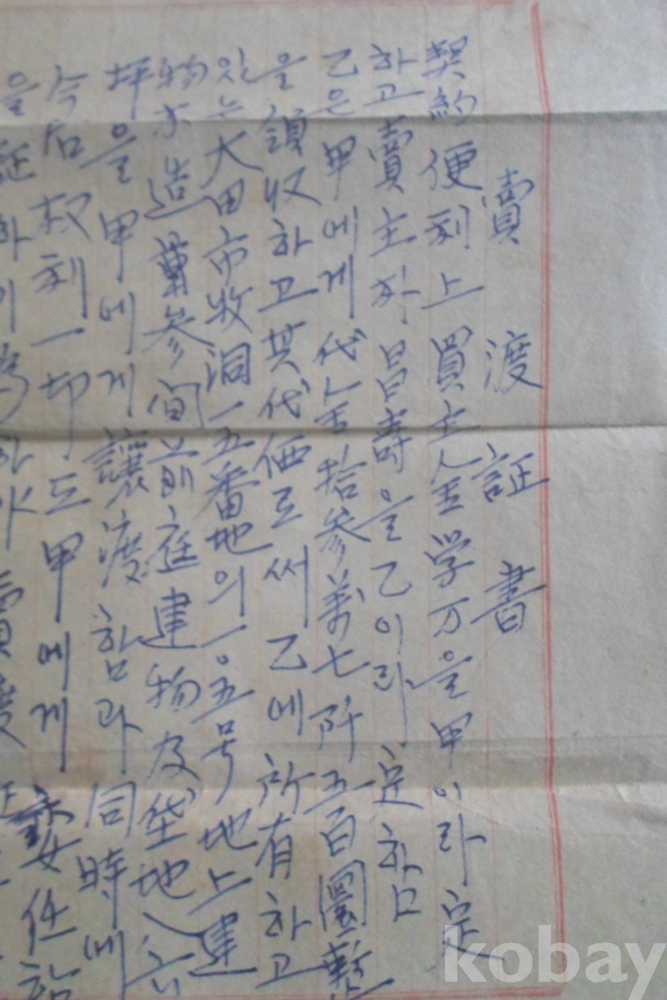 賣渡証書
契約便利上買主金学万을甲이라定
하고賣主朴昌壽을乙이라定함
乙은甲에게代金拾参萬七阡五百圜整
을領収하고其代価로써乙에所有하고
있는大田市牧洞一五番地의一五号地上建
物木造葺参间前庭建物及垈地八六
坪을甲에게讓渡함과同時에
今后权利一切도甲에게委任
을証하기爲하야賣渡証
kobay